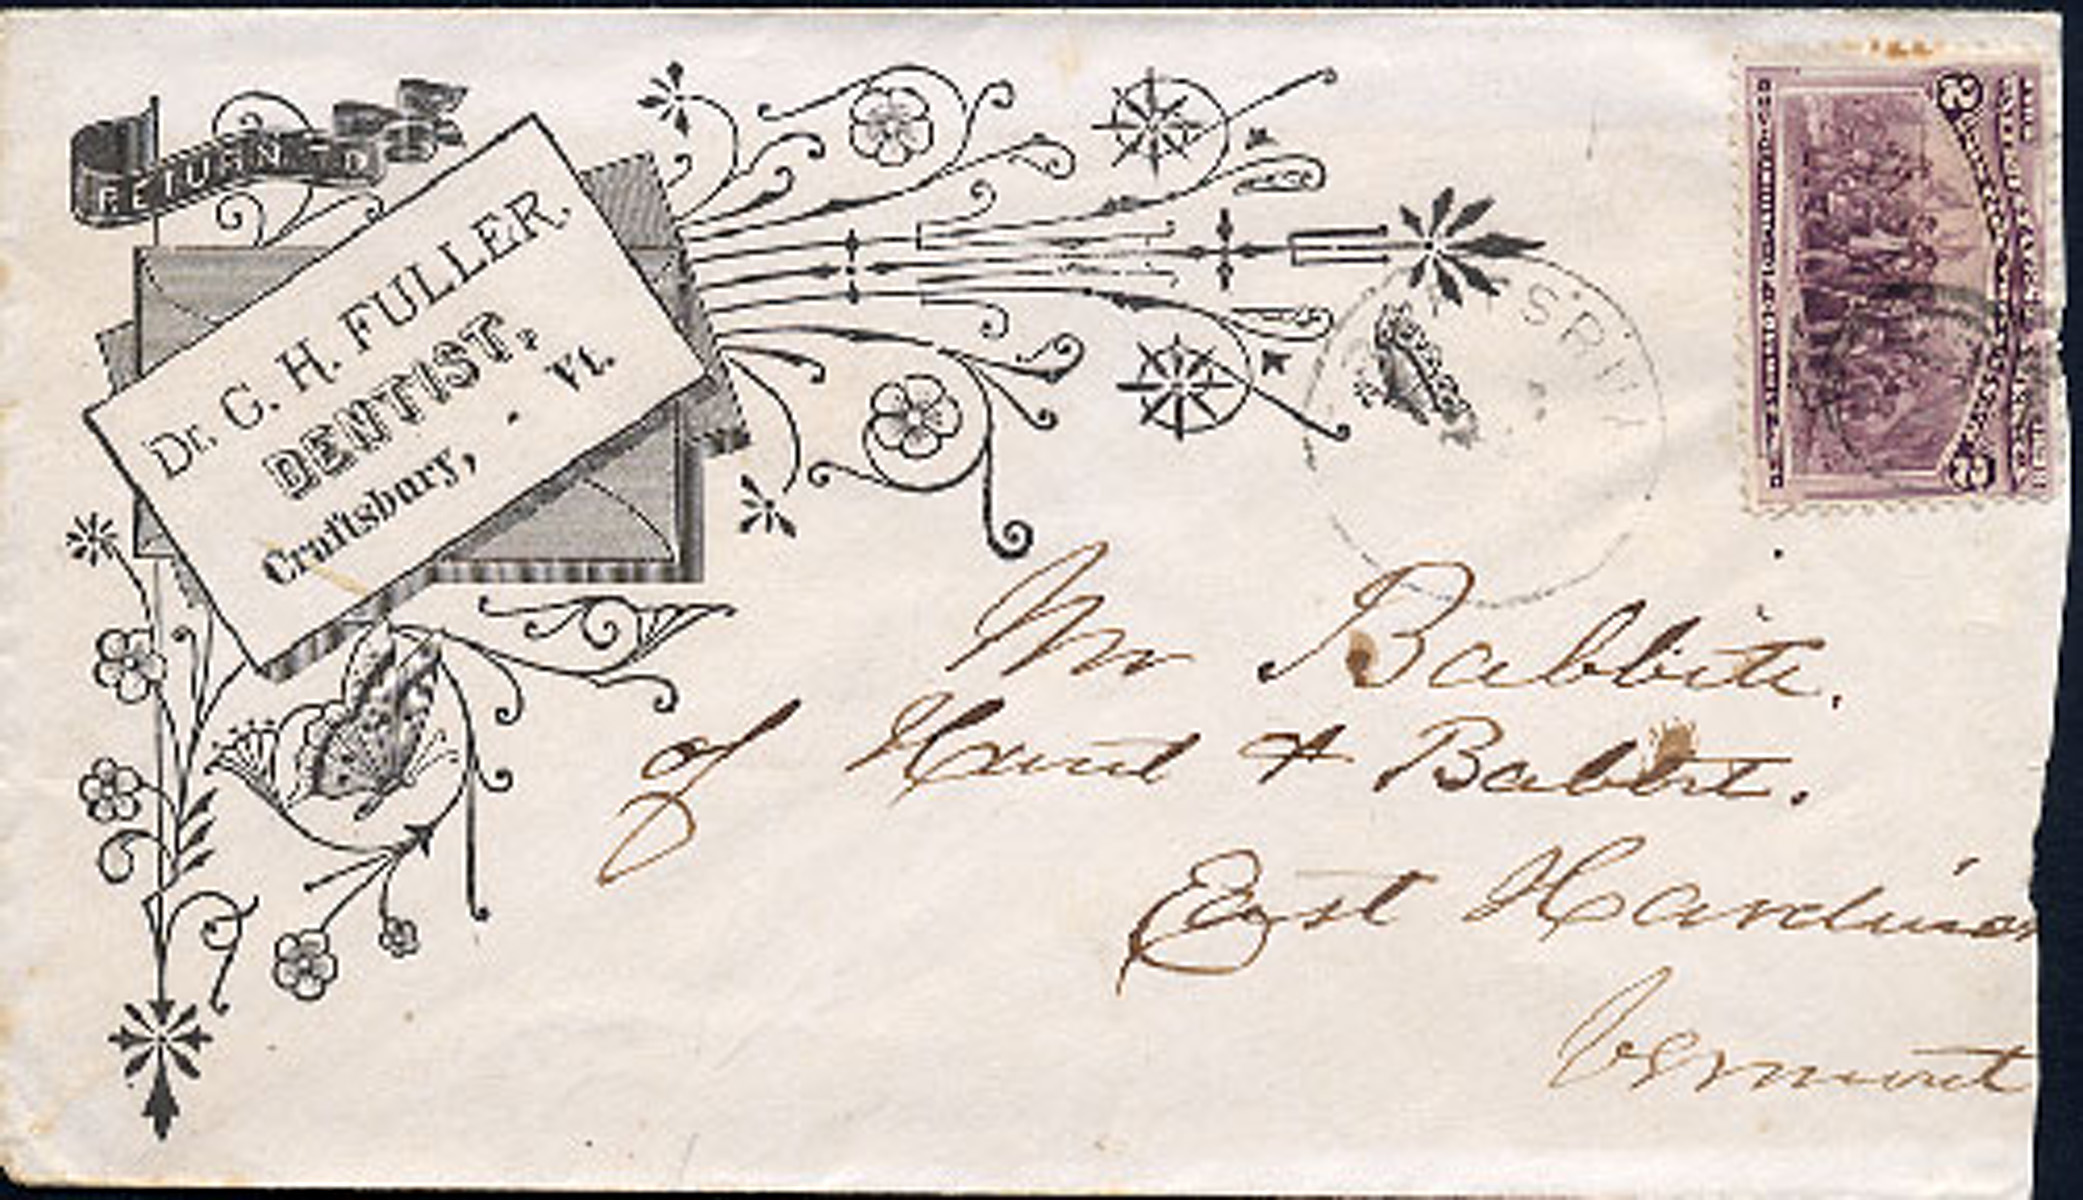 RETURN TO
Dr. G. H. FULLER,
DENTIST,
Craftsbury, - Vt.
2
2
Mr Babbitt.
of Hand & Babbit.
East Hardwick
Vermont